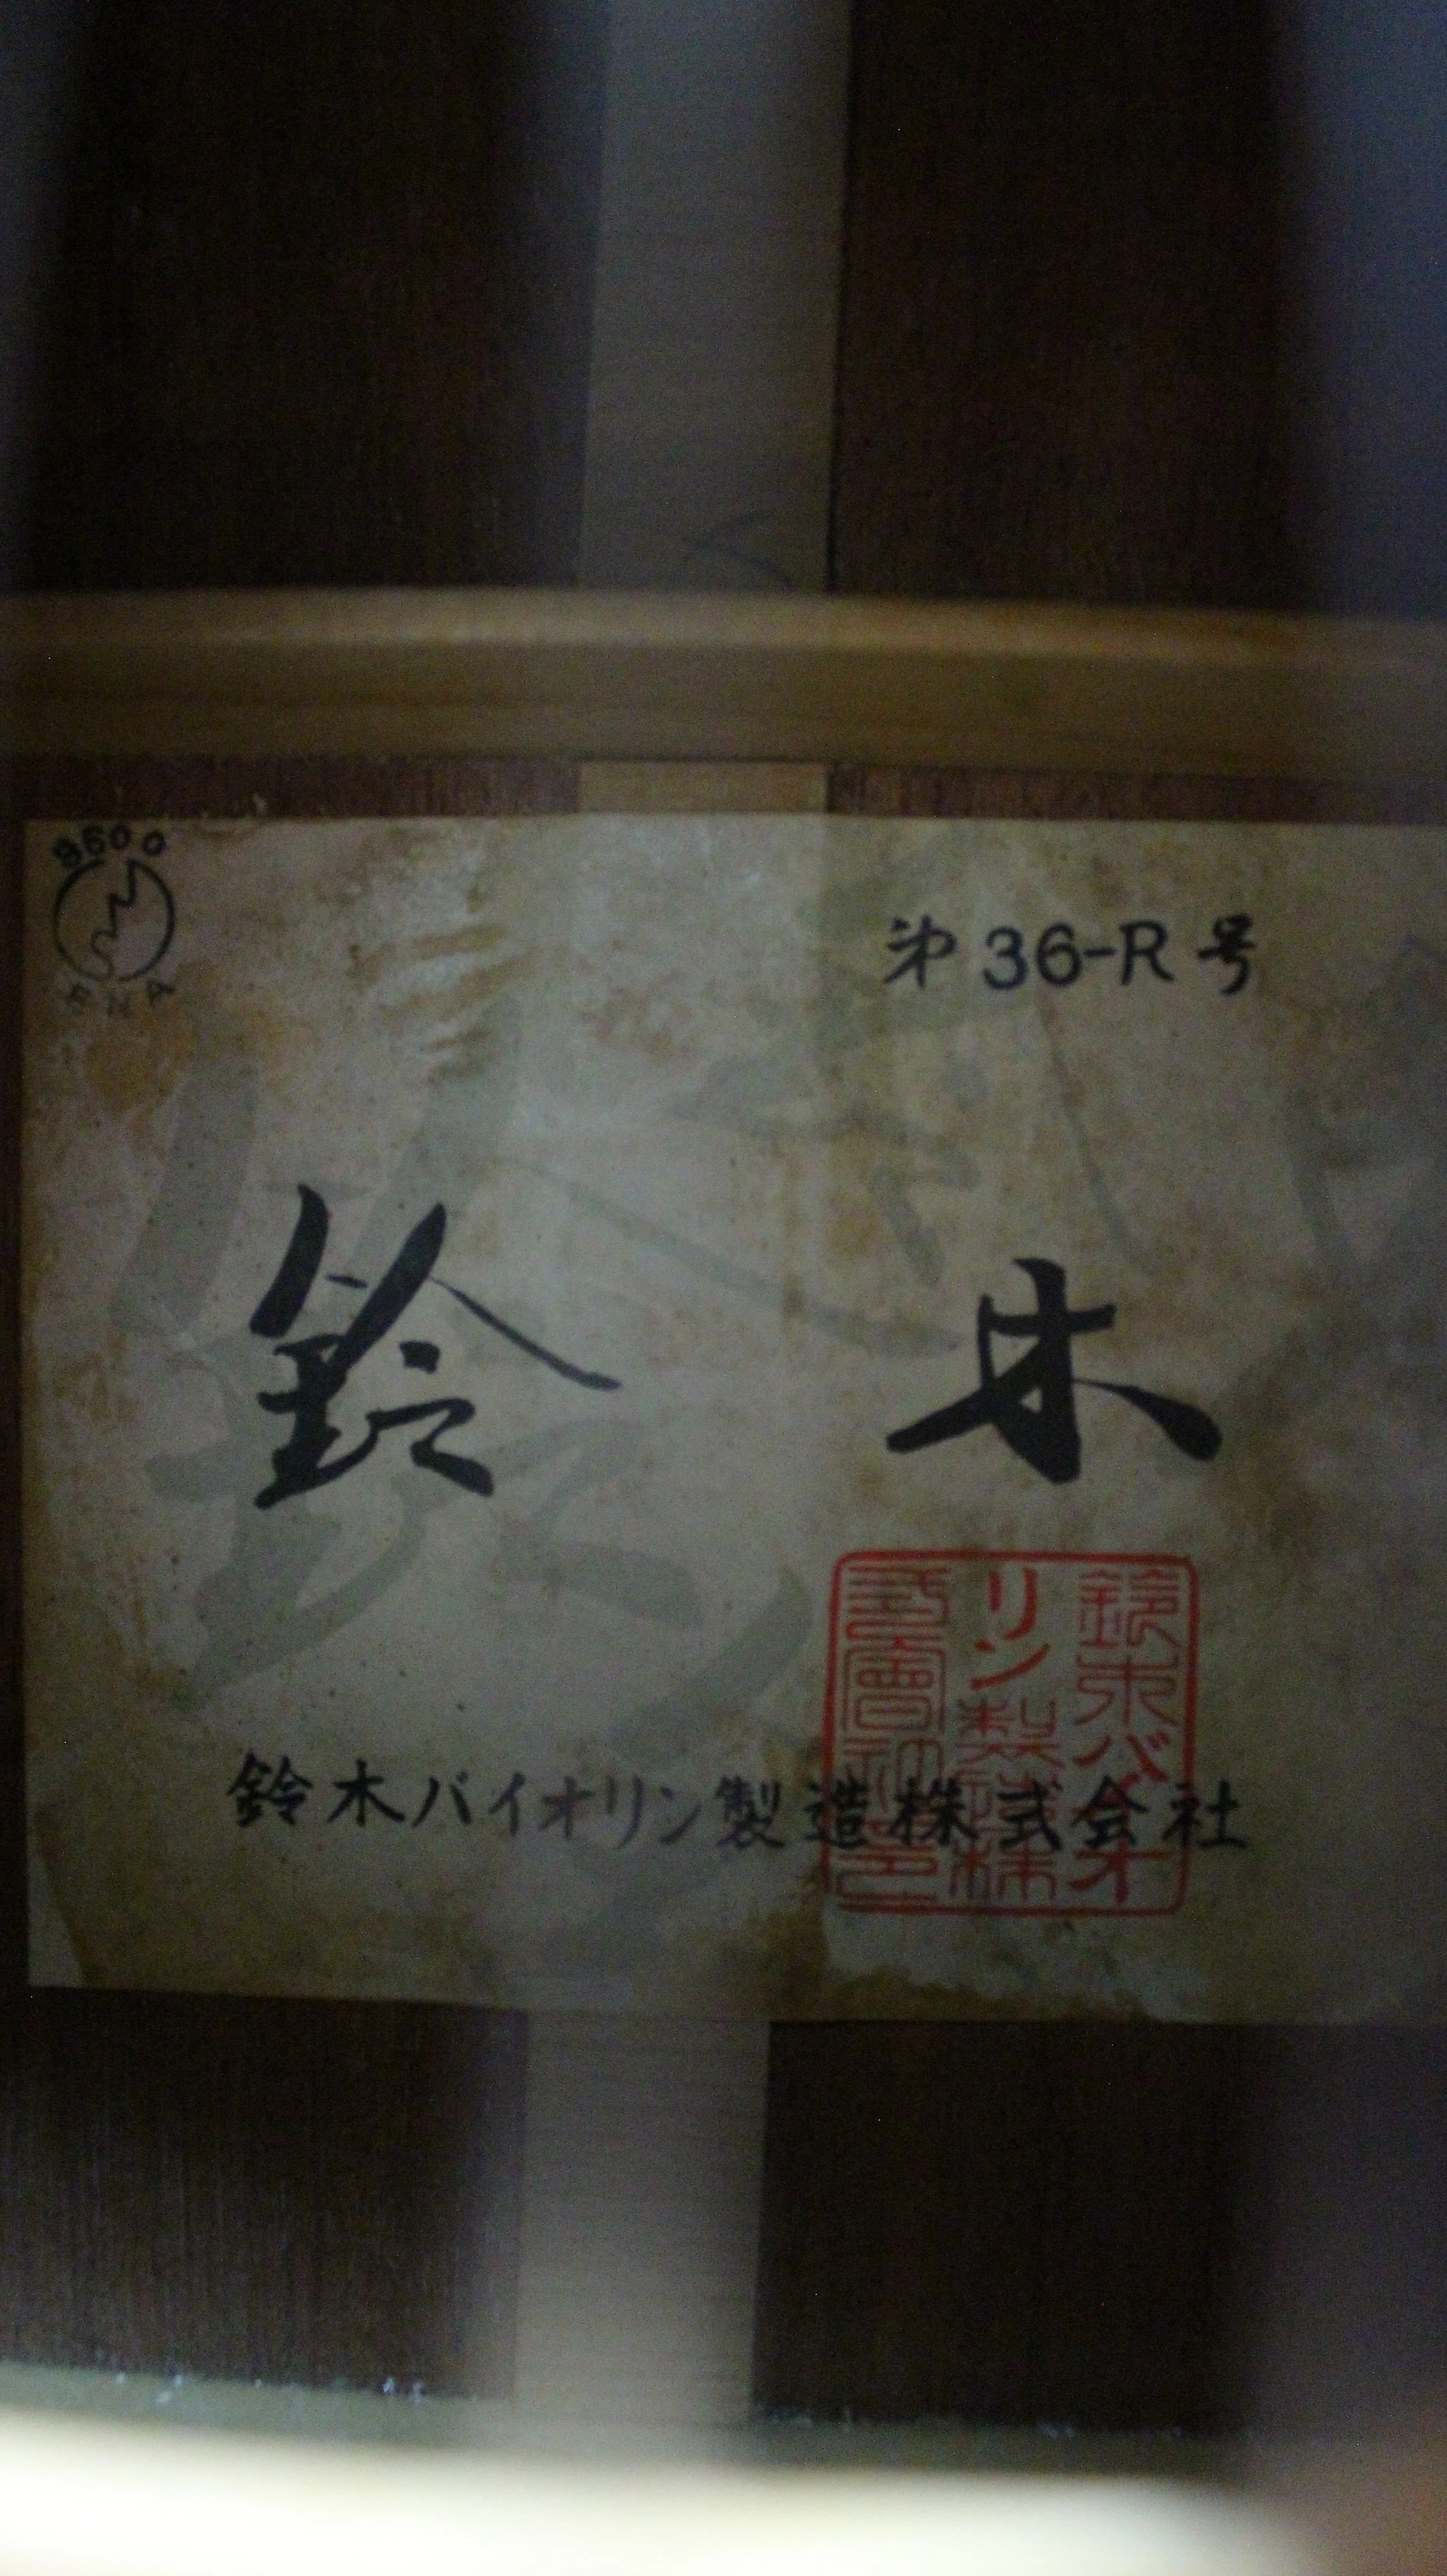 8600
第36-R号
鈴木
鈴木バイオリン製造株式会社
鈴木バイオ
リン製造株